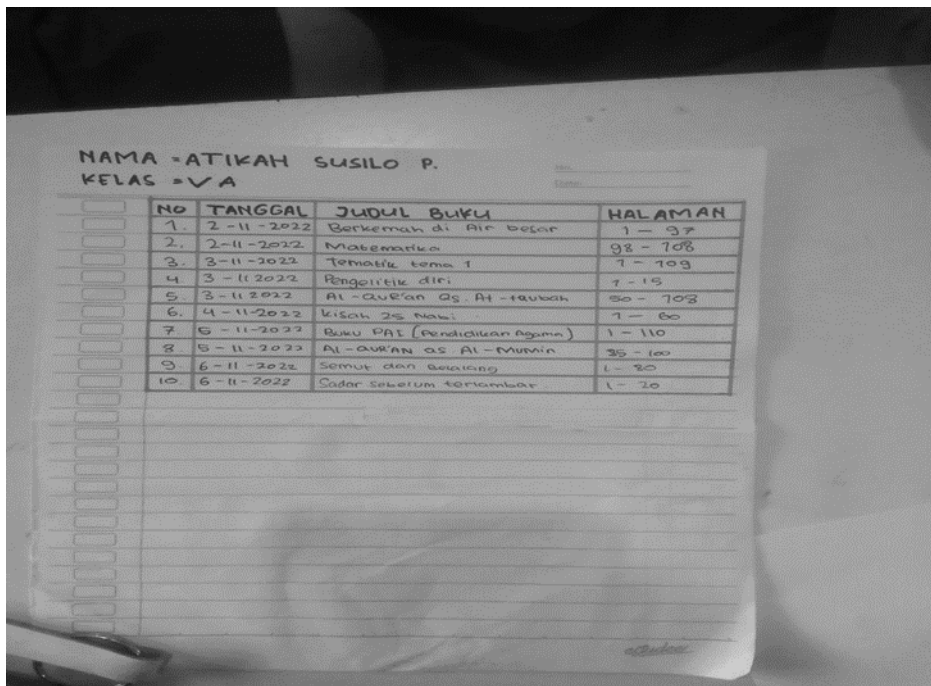 NAMA = ATIKAH SUSILO P.
KELAS = V A
NO TANGGAL JUDUL BUKU HALAMAN
1. 2-11-2022 Berkemah di Air besar 1 - 97
2. 2-11-2022 Matematika 98 - 108
3. 3-11-2022 Tematik tema 1 1 - 109
4. 3-11 2022 Pengelitik diri 1 - 15
5. 3-11 2022 Al-QUR'an Qs. At-taubah 50 - 108
6. 4-11-2022 Kisah 25 Nabi 1 - 60
7. 5-11-2022 Buku PAI (Pendidikan Agama) 1 - 110
8. 5-11-2022 Al-QUR'AN QS. Al-Mumin 35 - 100
9. 6-11-2022 Semut dan Belalang 1 - 20
10. 6-11-2022 Sadar Sebelum terlambat 1 - 20